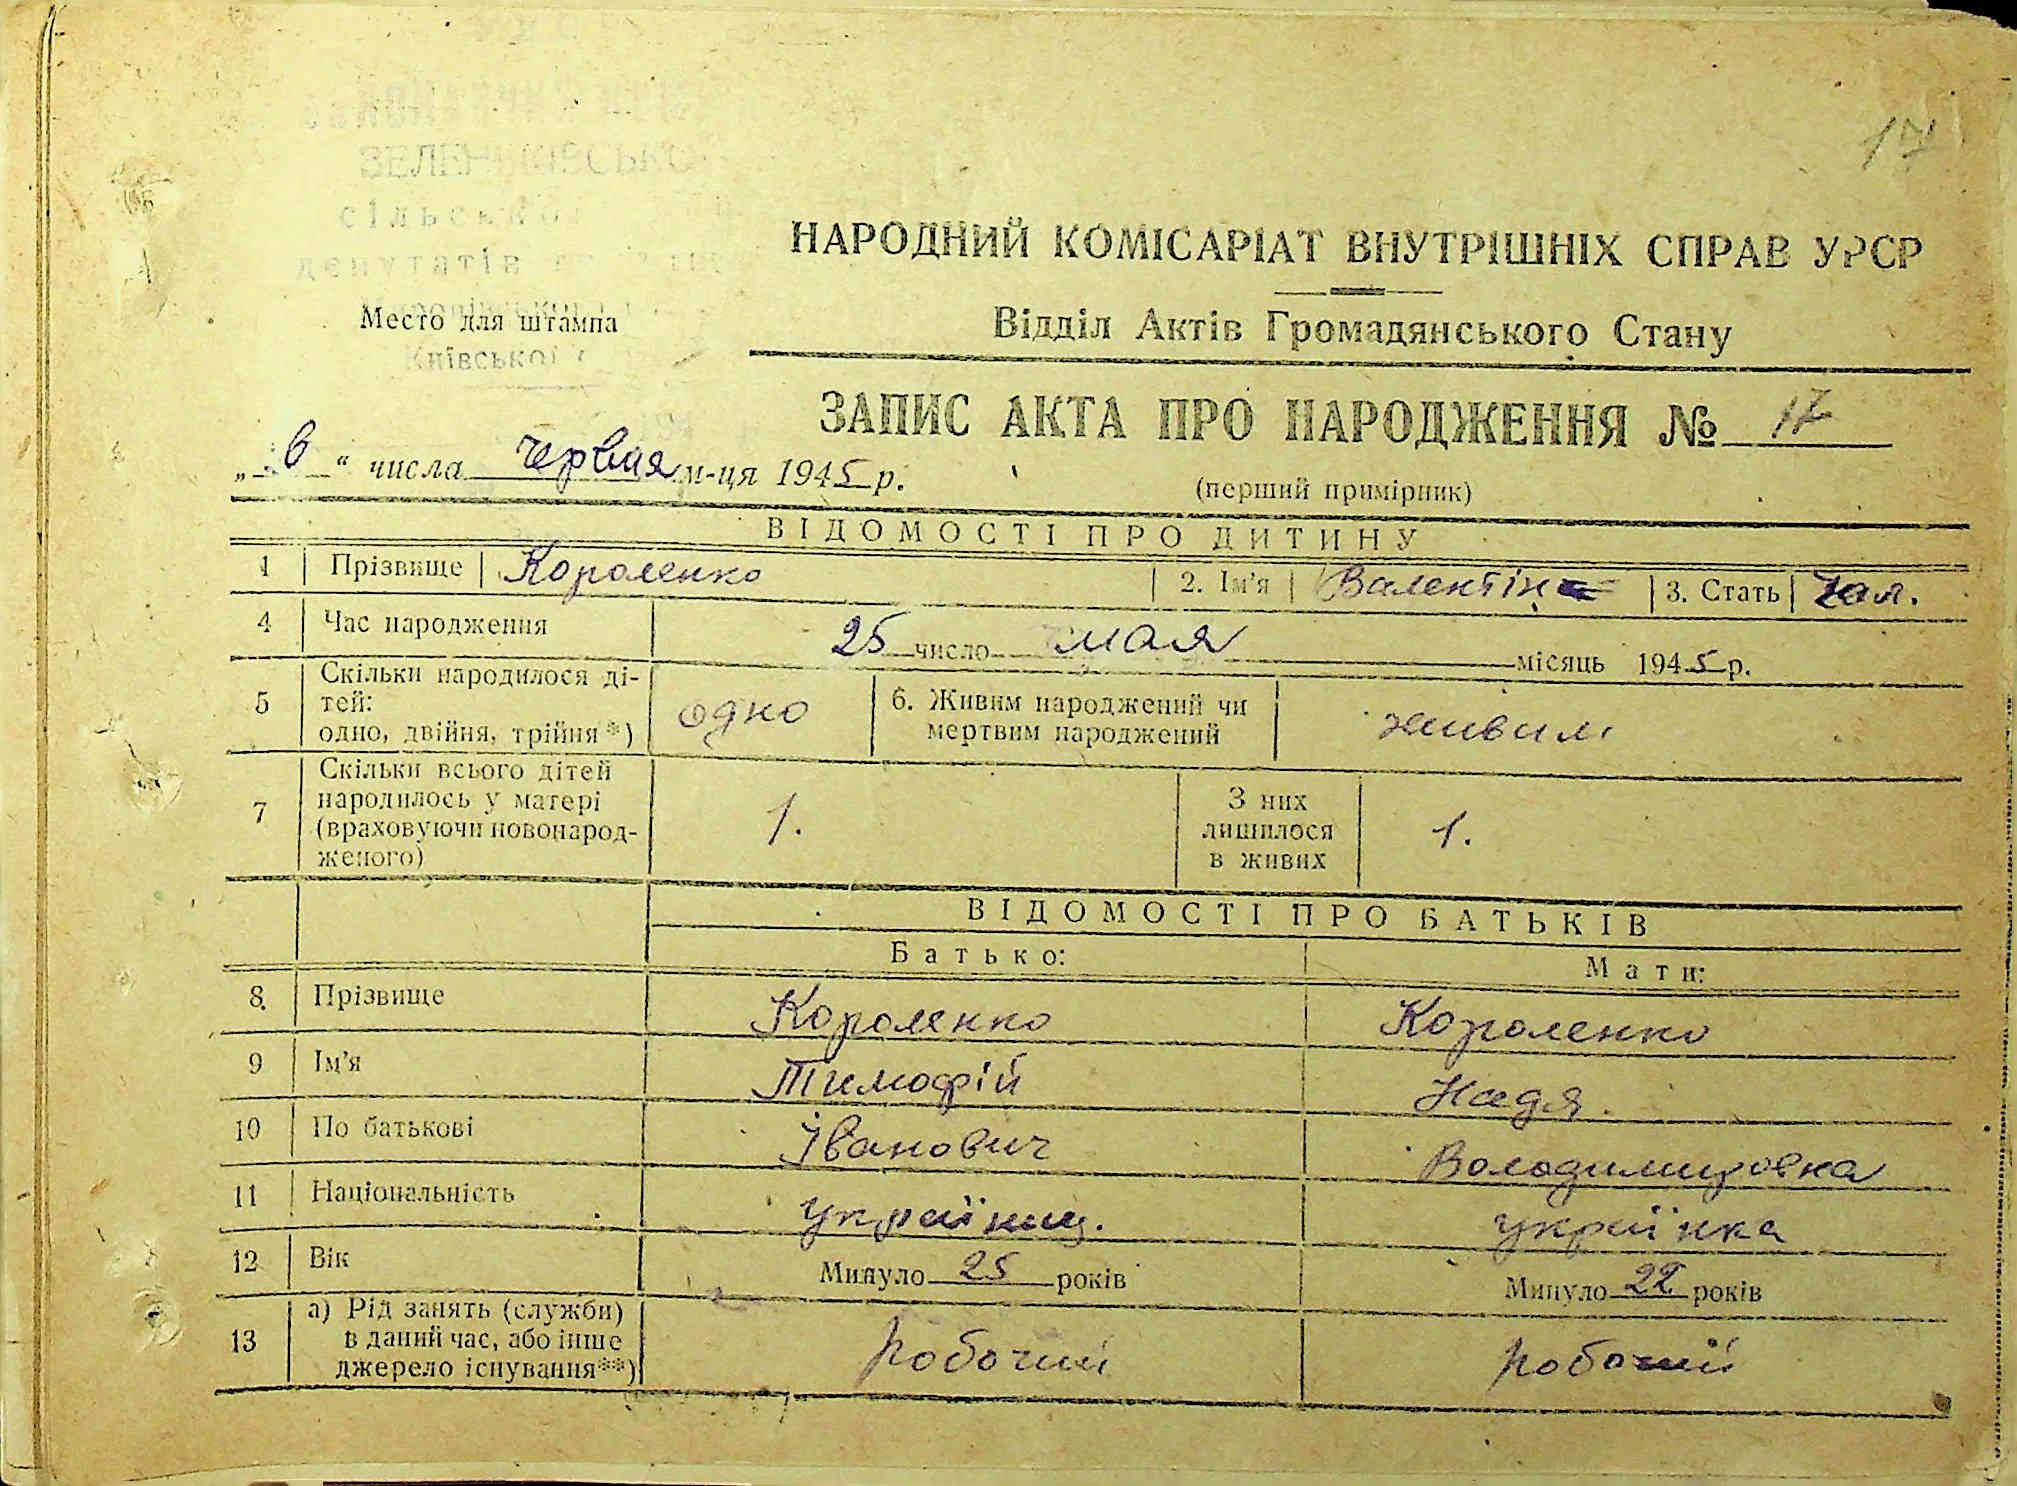 17
ЗЕЛЕНКІВСЬКО
сільсько
депутатів
НАРОДНИЙ КОМІСАРІАТ ВНУТРІШНІХ СПРАВ УРСР
Место для штампа
Київської
Відділ Актів Громадянського Стану
ЗАПИС АКТА ПРО НАРОДЖЕННЯ № 17
„ 6 “ числа червня м-ця 1945 р.
(перший примірник)
ВІДОМОСТІ ПРО ДИТИНУ
1 Прізвище Короленко 2. Ім'я Валентін 3. Стать чол.
4 Час народження 25 число мая місяць 1945 р.
5 Скільки народилося ді-
тей:
одно, двійня, трійня*) одно 6. Живим народжений чи
мертвим народжений живим
7 Скільки всього дітей
народилось у матері
(враховуючи новонарод-
женого) 1. З них
лишилося
в живих 1.
ВІДОМОСТІ ПРО БАТЬКІВ
Батько: Мати:
8. Прізвище Короленко Короленко
9 Ім'я Тимофій Надя.
10 По батькові Іванович Володимировна
11 Національність українц. українка
12 Вік Минуло 25 років Минуло 22 років
13 а) Рід занять (служби)
в даний час, або інше
джерело існування**) робочий робочий